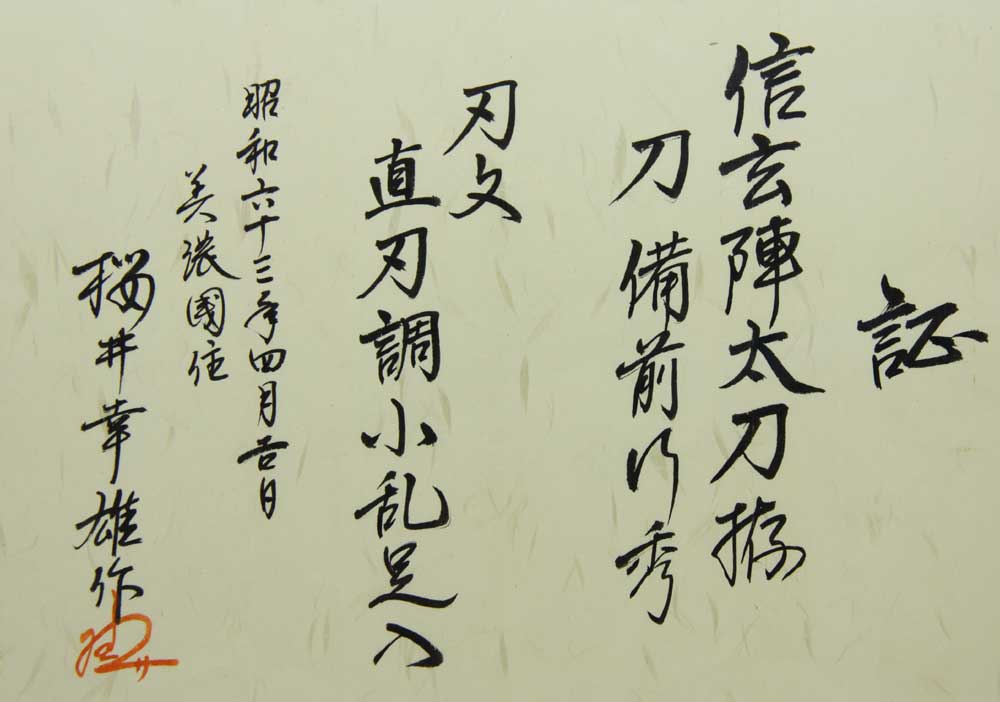 証
信玄陣太刀拵
刀 備前行秀
刃文
直刃調小乱足入
昭和六十三年四月吉日
美濃國住
桜井幸雄作